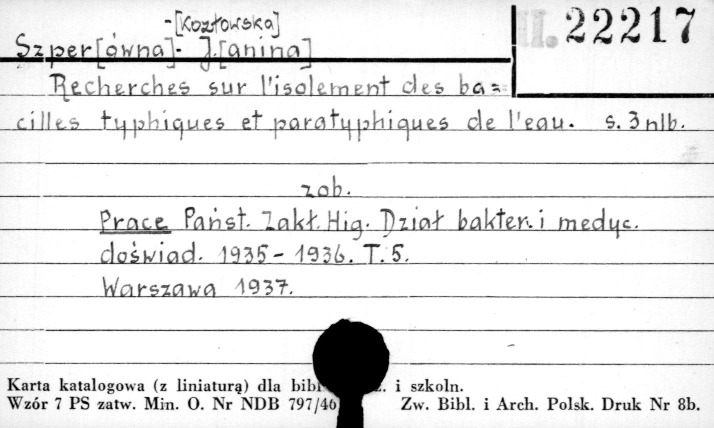 -[Kozłowska]
Szper[ówna]- J.[anina]
II. 22217
Recherches sur l'isolement des ba=
cilles typhiques et paratyphiques de l'eau. s. 3 nlb.
zob.
Prace Państ. Zakł. Hig. Dział bakter. i medyc.
doświad. 1935-1936. T. 5.
Warszawa 1937.
Karta katalogowa (z liniaturą) dla i szkoln.
Wzór 7 PS zatw. Min. O. Nr NDB 797/46 Zw. Bibl. i Arch. Polsk. Druk Nr 8b.